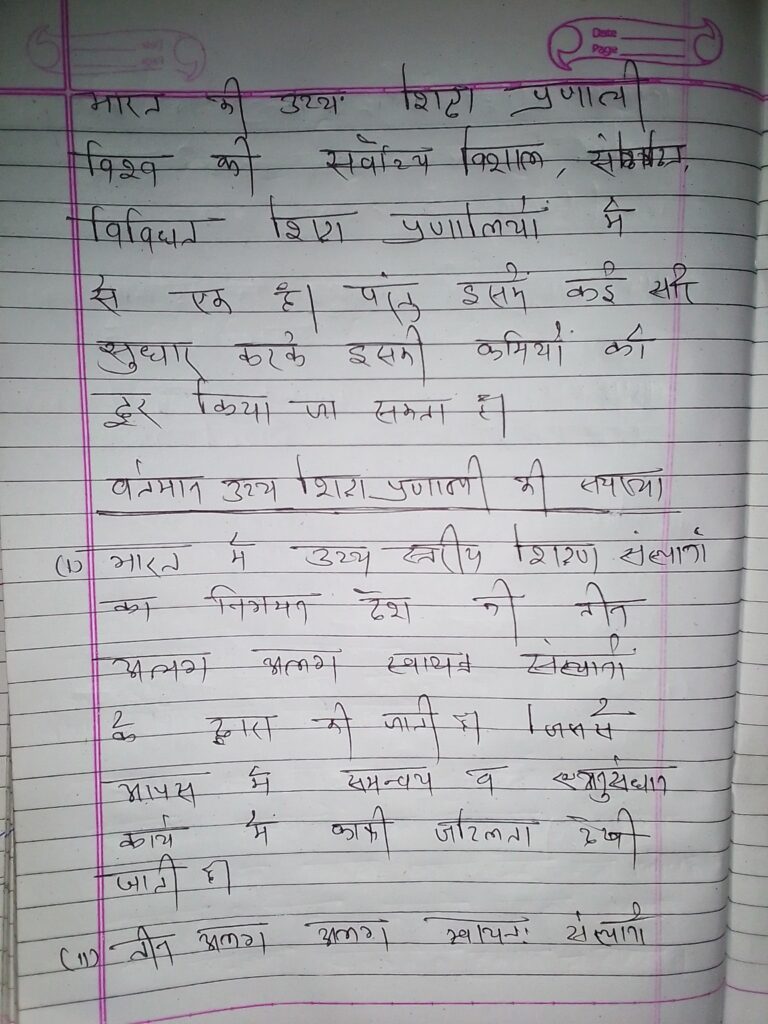 Date
Page
भारत की उच्च शिक्षा प्रणाली
विश्व की सर्वोच्च विशाल,
विविधत शिक्षा प्रणालियों में
से एक है। परंतु इसमें कई
सुधार करके इसकी कमियों को
दूर किया जा सकता है।
वर्तमान उच्च शिक्षा प्रणाली की समस्या
(i) भारत में उच्च स्तरीय शिक्षण संस्थानों
का नियमन देश की तीन
अलग अलग स्वायत्त संस्थानों
के द्वारा की जाती है। जिससे
आपस में समन्वय व अनुसंधान
कार्य में काफी जटिलता देखी
जाती है।
(ii) तीन अलग अलग स्वायत्त संस्थानों